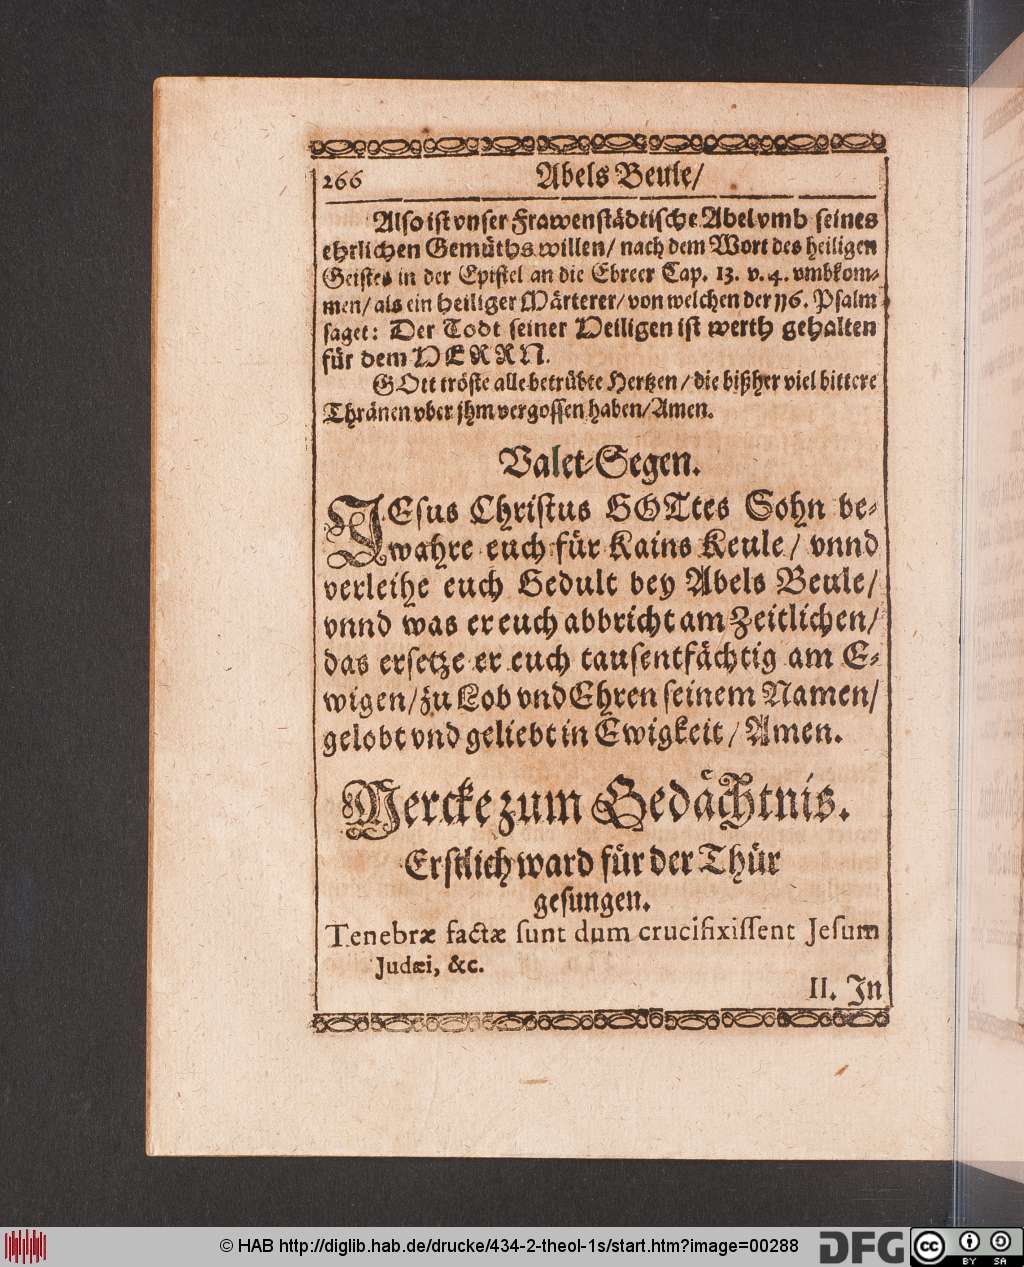 266 Abels Beule/
Also ist vnser Frawenstädtische Abel vmb seines
ehrlichen Gemüths willen/ nach dem Wort des heiligen
Geistes in der Epistel an die Ebreer Cap. 13. v. 4. vmbkom-
men/ als ein heiliger Märterer/ von welchen der 116. Psalm
saget: Der Todt seiner Heiligen ist werth gehalten
für dem HERRN.
GOtt tröste alle betrübte Hertzen/ die bißher viel bittere
Thränen vber jhm vergossen haben/ Amen.
Valet-Segen.
JEsus Christus GOTtes Sohn be-
wahre euch für Kains Keule/ vnnd
verleihe euch Gedult bey Abels Beule/
vnnd was er euch abbricht am Zeitlichen/
das ersetze er euch tausentfächtig am E-
wigen/ zu Lob vnd Ehren seinem Namen/
gelobt vnd geliebt in Ewigkeit/ Amen.
Mercke zum Gedächtnis.
Erstlich ward für der Thür
gesungen.
Tenebræ factæ sunt dum crucifixissent Jesum
Judæi, &c.
II. Jn
© HAB http://diglib.hab.de/drucke/434-2-theol-1s/start.htm?image=00288
DFG
cc BY SA